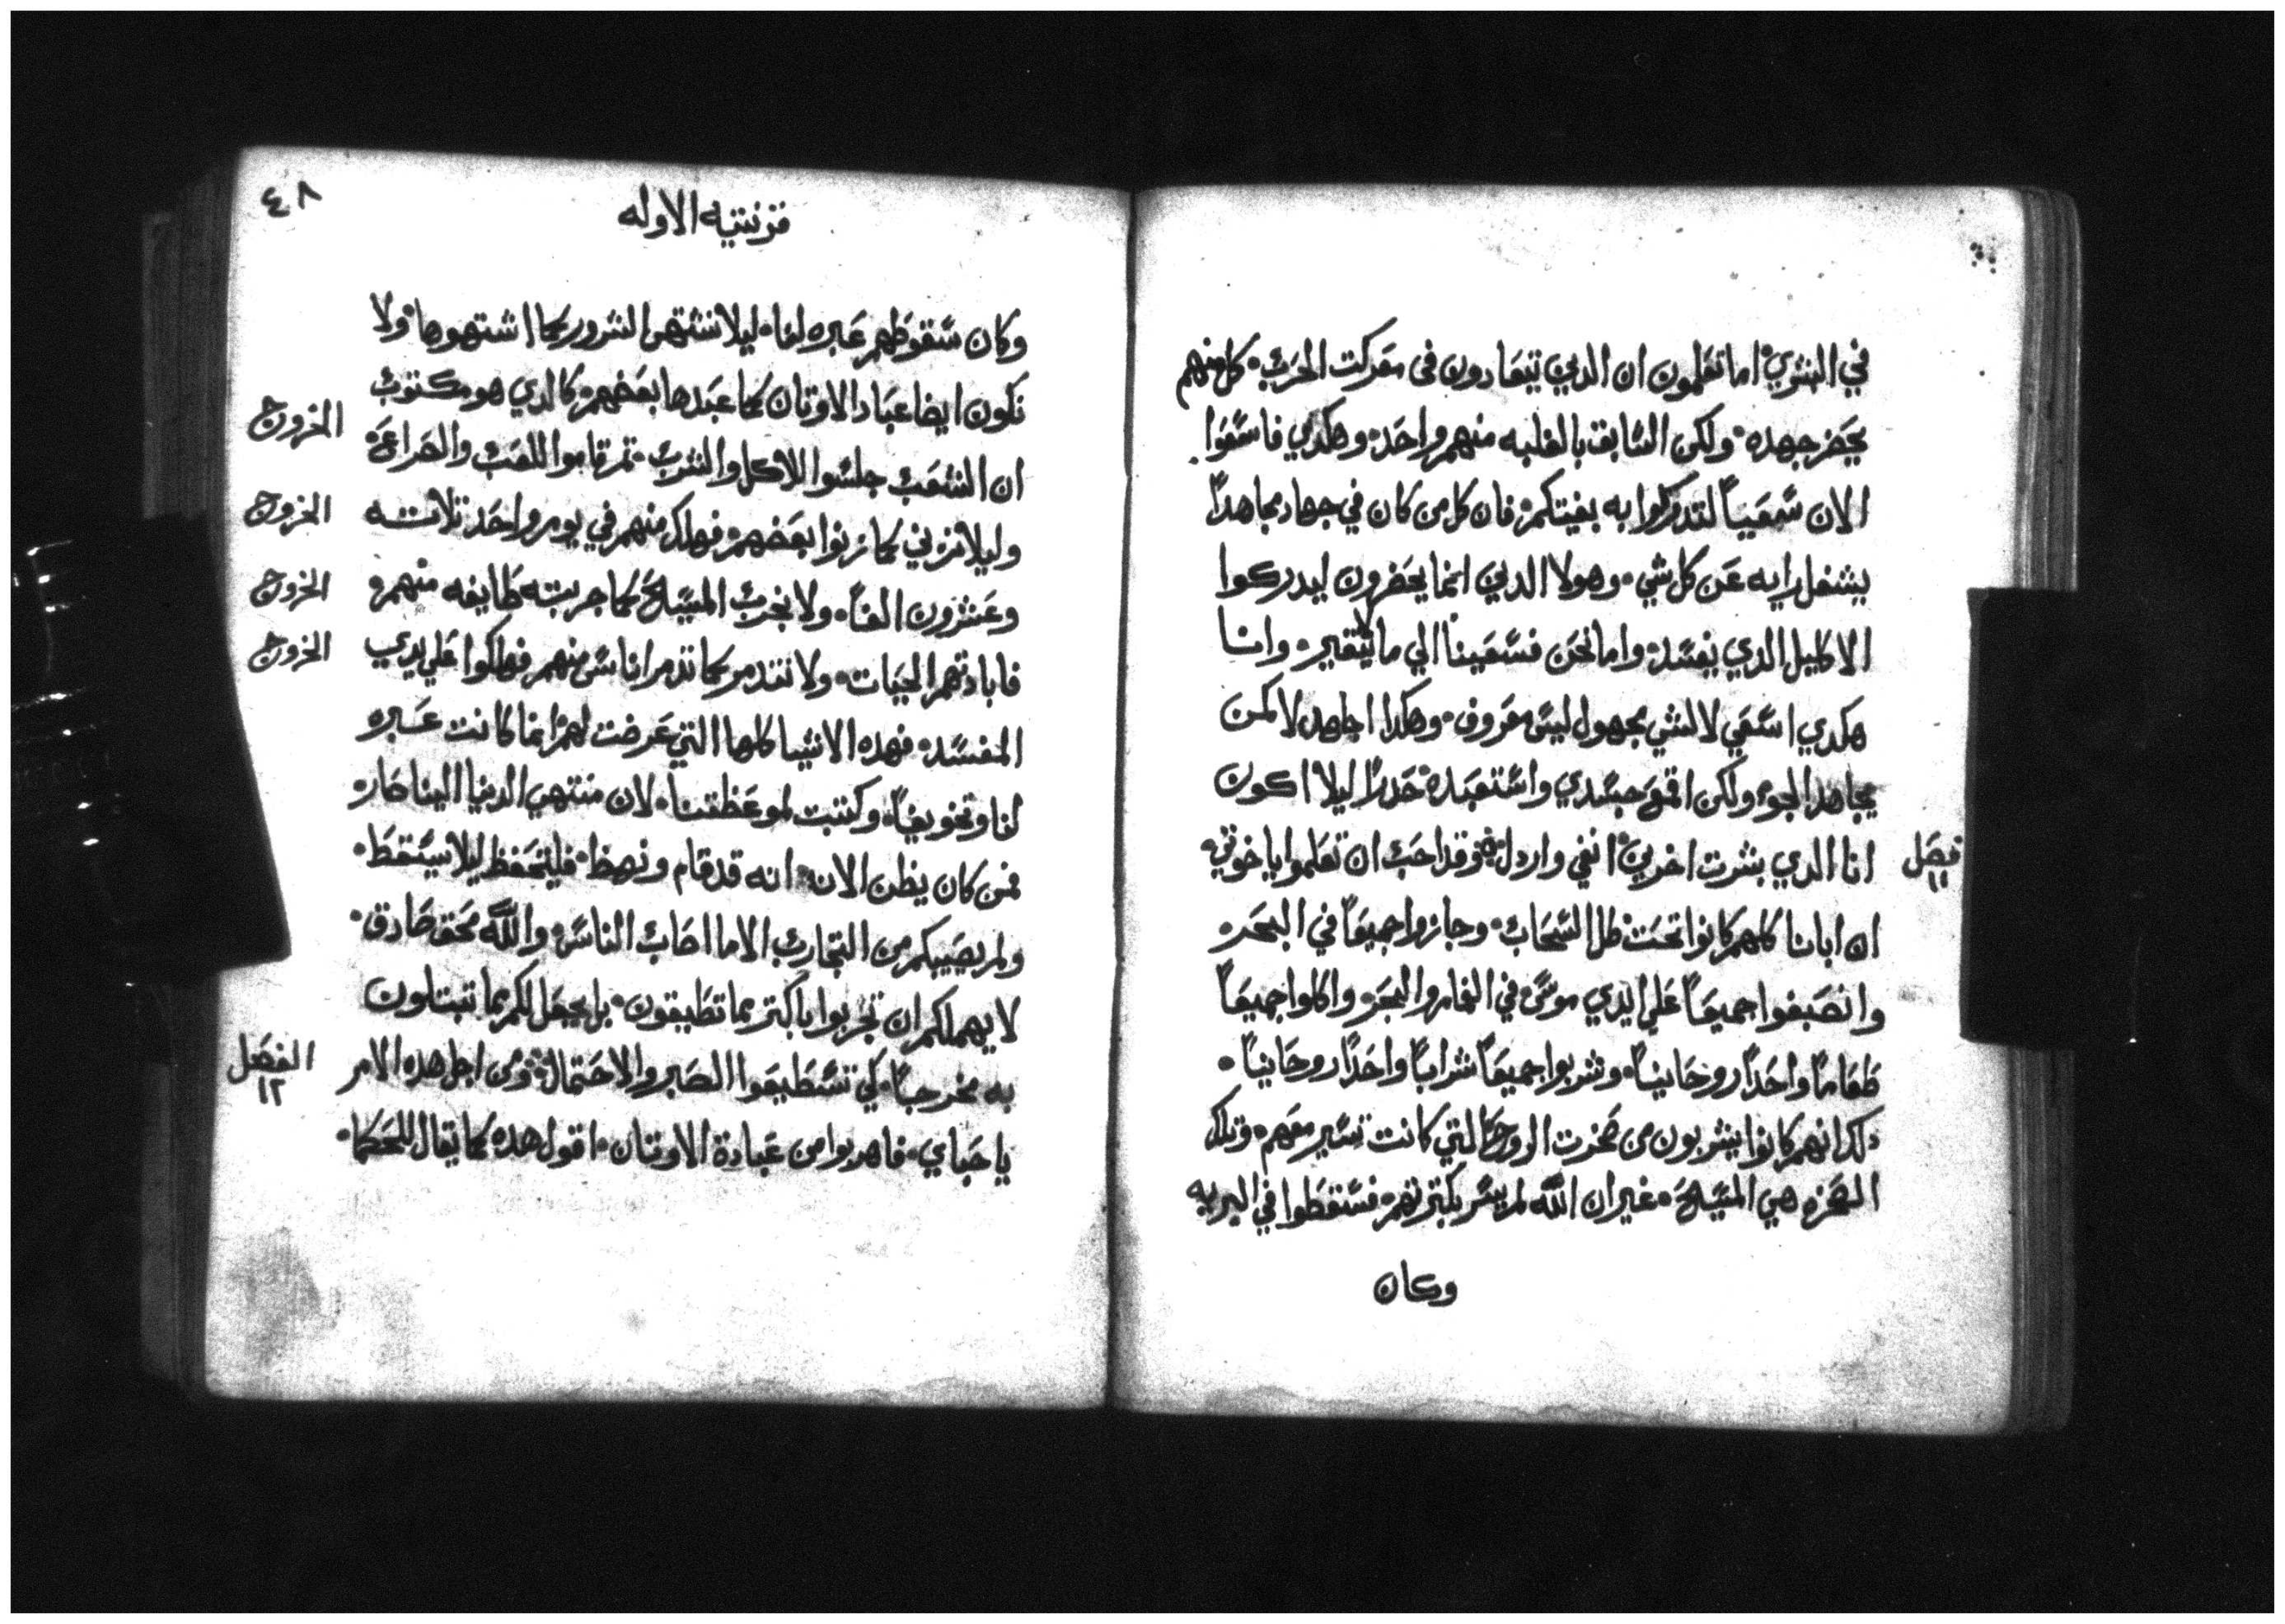 في البشري۰ اما تعلمون ان الدين يتعادون فى معركت الحرب۰ كل منهم
يحفز جهده۰ ولكن السابق بالغلبه منهم واحد۰ وهكدي فاسعوا
الان سعياً لتدركوا به بغيتكم۰ فان كل من كان في جهاد مجاهداً
يشغل رايه عن كل شي۰ وهولا الدين انما يحفزون ليدركوا
الاكليل الدي يفسد۰ واما نحن فسعينا الي ما لا يتغير۰ وانا
هكدي اسعي لا لشي مجهول ليس معروف۰ وهكدا اجاهد لا كمن
يجاهد الجو۰ ولكن اقمع جسدي واستعبده۰ حدراً ليلا اكون
انا الدي بشرت اخرين۰ انفي واردل۰ وقد احب ان تعلموا ياخوتي۰
فصل
١١
ان ابانا كلهم كانوا تحت ظل السحاب۰ وجازوا جميعاً في البحر۰
وانصبغوا جميعاً علي ايدي موسى في الغمام والبحر۰ واكلوا جميعاً
طعاماً واحداً روحانياً۰ وشربوا جميعاً شراباً واحداً روحانياً۰
دلك انهم كانوا يشربون من صخرت الروح التي كانت تسير معهم۰ وتلك
الصخره هي المسيح۰ غير ان الله لم يسر بكترتهم۰ فسقطوا في البريه
وكان
٤٨
قرنتيه الاوله
وكان سقوطهم عبره لنا۰ ليلا نشتهى الشرور كما اشتهوها۰ ولا
نكون ايضا عباد الاوتان كما عبدها بعضهم۰ كالدي هو مكتوب
الخروج
ان الشعب جلسوا للاكل والشرب۰ تم قاموا للعب والصراعه
وليلا نزني كما زنوا بعضهم۰ فهلك منهم في يوم واحد تلاتته
الخروج
وعشرون الفاً۰ ولا نجرب المسيح كما جربته طايفه منهم۰
الخروج
فابادتهم الحيات۰ ولا نتدمر كما تدمر اناس منهم فهلكوا علي يدي
الخروج
المفسد۰ فهده الاشيا كلها التي عرضت لهم انما كانت عبره
لنا وتخويفاً۰ وكتبت لموعظتنا۰ لان منتهي الدنيا الينا صار۰
فمن كان يظن الان۰ انه قد قام ونهظ۰ فليتحفظ ليلا يسقط۰
ولم يصيبكم من التجارب الا ما اصاب الناس۰ والله محق صادق۰
لا يهملكم ان تجربوا باكتر مما تطيقون۰ بل يجعل لكم مما تبتلون
به مخرجاً۰ كي تسطيعوا الصبر والاحتمال۰ ومن اجل هده الامر
الفصل
١٢
ياحباي۰ فاهربوا من عبادة الاوتان۰ اقول هده كما يقال للحكما۰